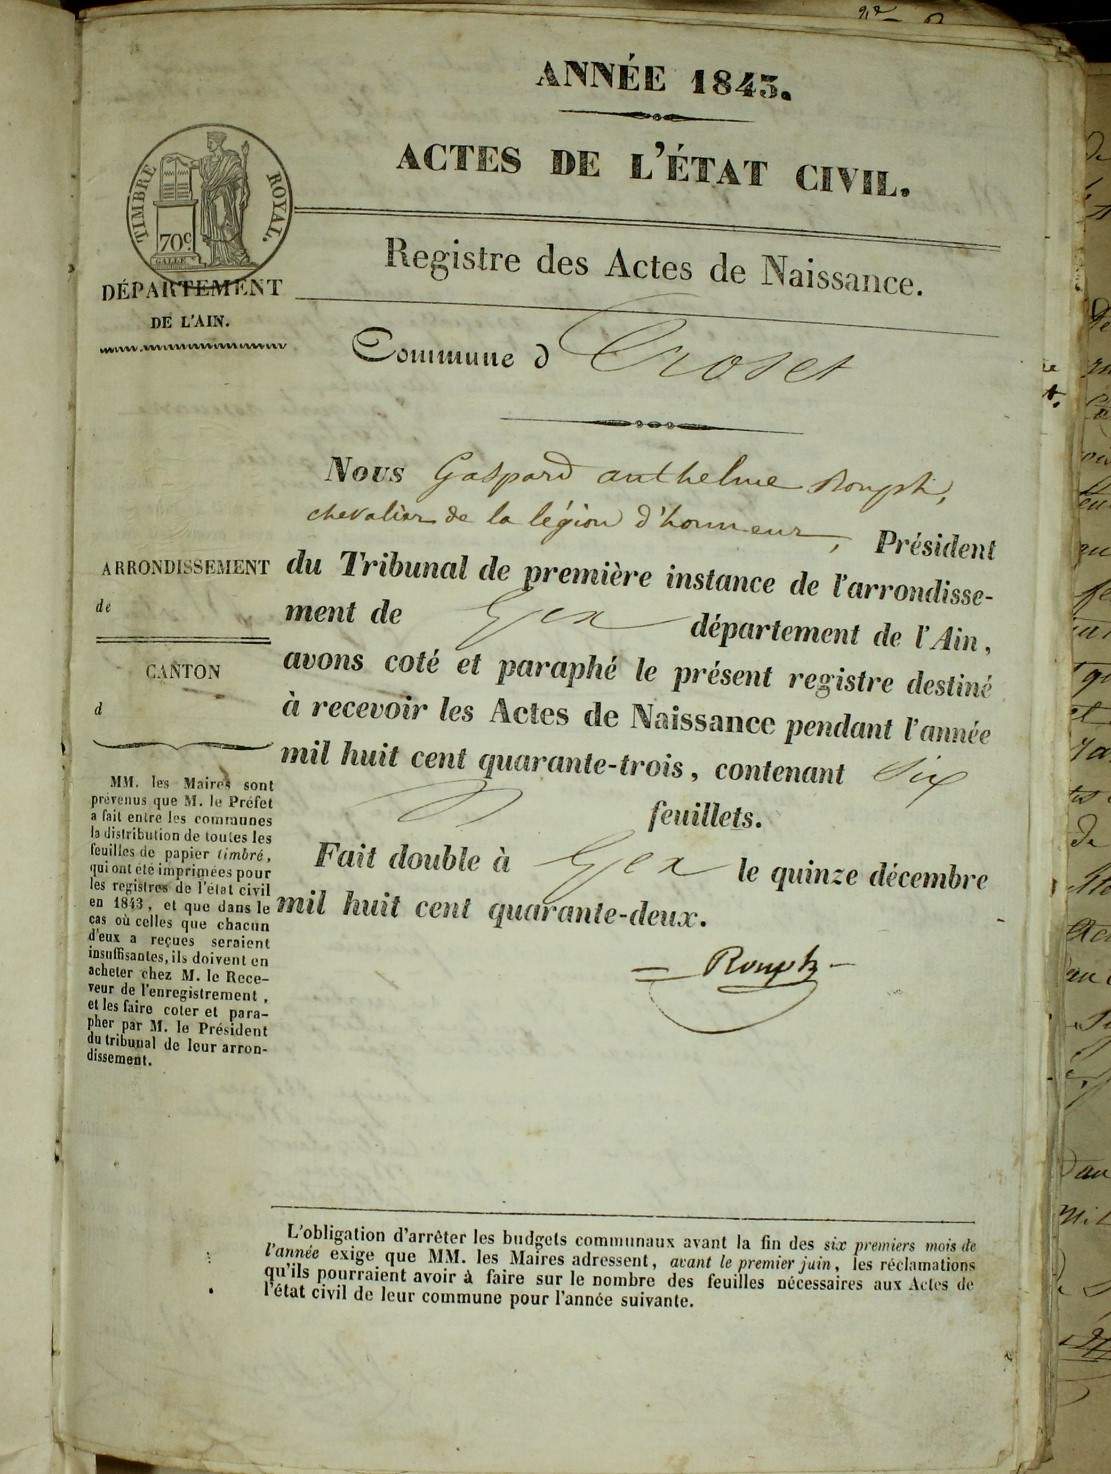 ANNÉE 1843.
ACTES DE L'ÉTAT CIVIL.
TIMBRE ROYAL.
70c
GALLE
DÉPARTEMENT
DE L'AIN.
Registre des Actes de Naissance.
Commune d Crozet
Nous Gaspard anthelme Rouph,
chevalier de la légion d'honneur, Président
du Tribunal de première instance de l'arrondisse-
ment de Gex département de l'Ain,
avons coté et paraphé le présent registre destiné
à recevoir les Actes de Naissance pendant l'année
mil huit cent quarante-trois, contenant six
feuillets.
Fait double à Gex le quinze décembre
mil huit cent quarante-deux.
Rouph
ARRONDISSEMENT
de
CANTON
d
MM. les Maires sont
prévenus que M. le Préfet
a fait entre les communes
la distribution de toutes les
feuilles de papier timbré,
qui ont été imprimées pour
les registres de l'état civil
en 1843, et que dans le
cas où celles que chacun
d'eux a reçues seraient
insuffisantes, ils doivent en
acheter chez M. le Rece-
veur de l'enregistrement,
et les faire coter et para-
pher par M. le Président
du tribunal de leur arron-
dissement.
L'obligation d'arrêter les budgets communaux avant la fin des six premiers mois de
l'année exige que MM. les Maires adressent, avant le premier juin, les réclamations
qu'ils pourraient avoir à faire sur le nombre des feuilles nécessaires aux Actes de
l'état civil de leur commune pour l'année suivante.